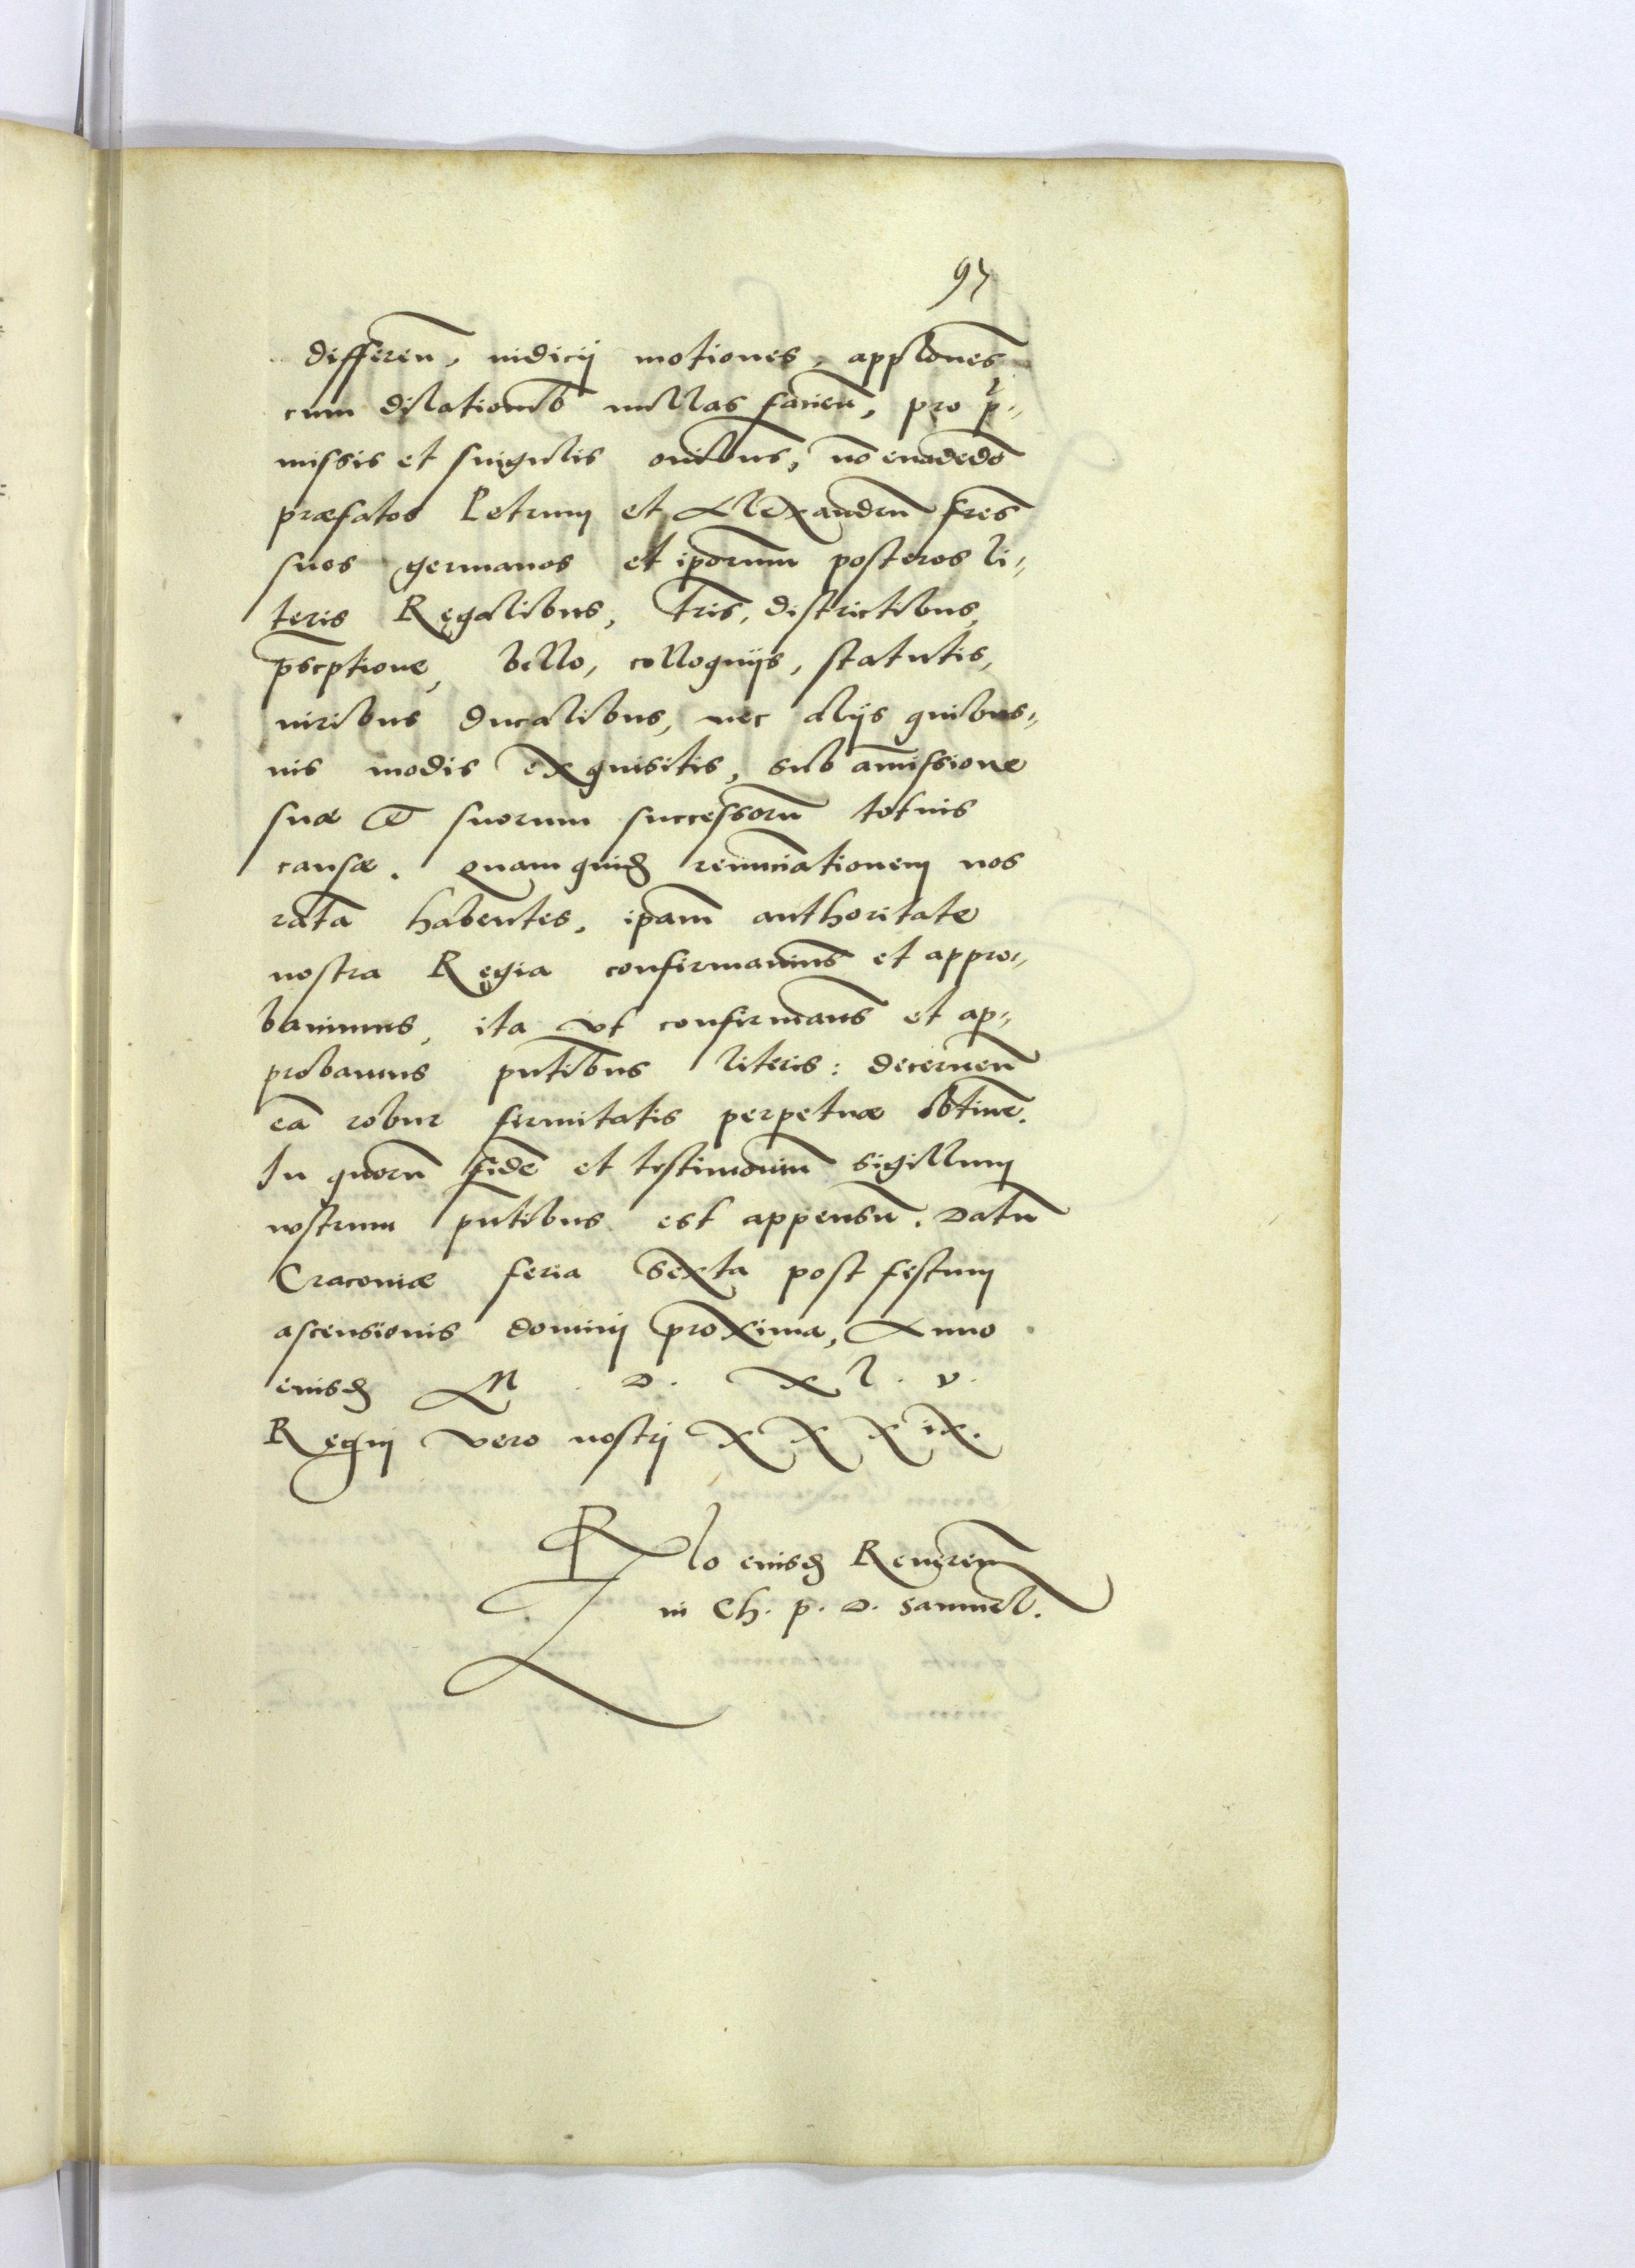 97
differen̄, iudicij motiones, applōnes
cum dilationib̄ nullas facien̄, pro p̄¬
missis et singulis om̄ibus, nō euadēdo
præfatos Petrum et Alexandrū frēs
suos germanos et ip̄orum posteros li¬
teris Regalibus, tr̄is, districtibus,
p̄scptione, bello, colloquijs, statutis,
iuribus ducalibus, nec alijs quibus¬
uis modis exquisitis, sub amissione
suæ et suorum successorū totius
causæ. quam quidē renunciationem nos
ratā habentes, ip̄am authoritate
nostra Regia confirmauim̄ et appro¬
bauimus, ita vt confirmam̄s et ap¬
probamus pn̄tibus literis: decernen̄
eā robur firmitatis perpetuæ obtinē.
In quorū fidē et testimoniū sigillum
nostrum pn̄tibus est appensū. Datū
Cracouiæ feria sexta post festum
ascensionis domini proxima, Anno
eiusdē M. D. x l. v.
Regni vero nostri xxxix.
Rlo eiusdē Reueren̄
in Ch. p. D. Samuel.